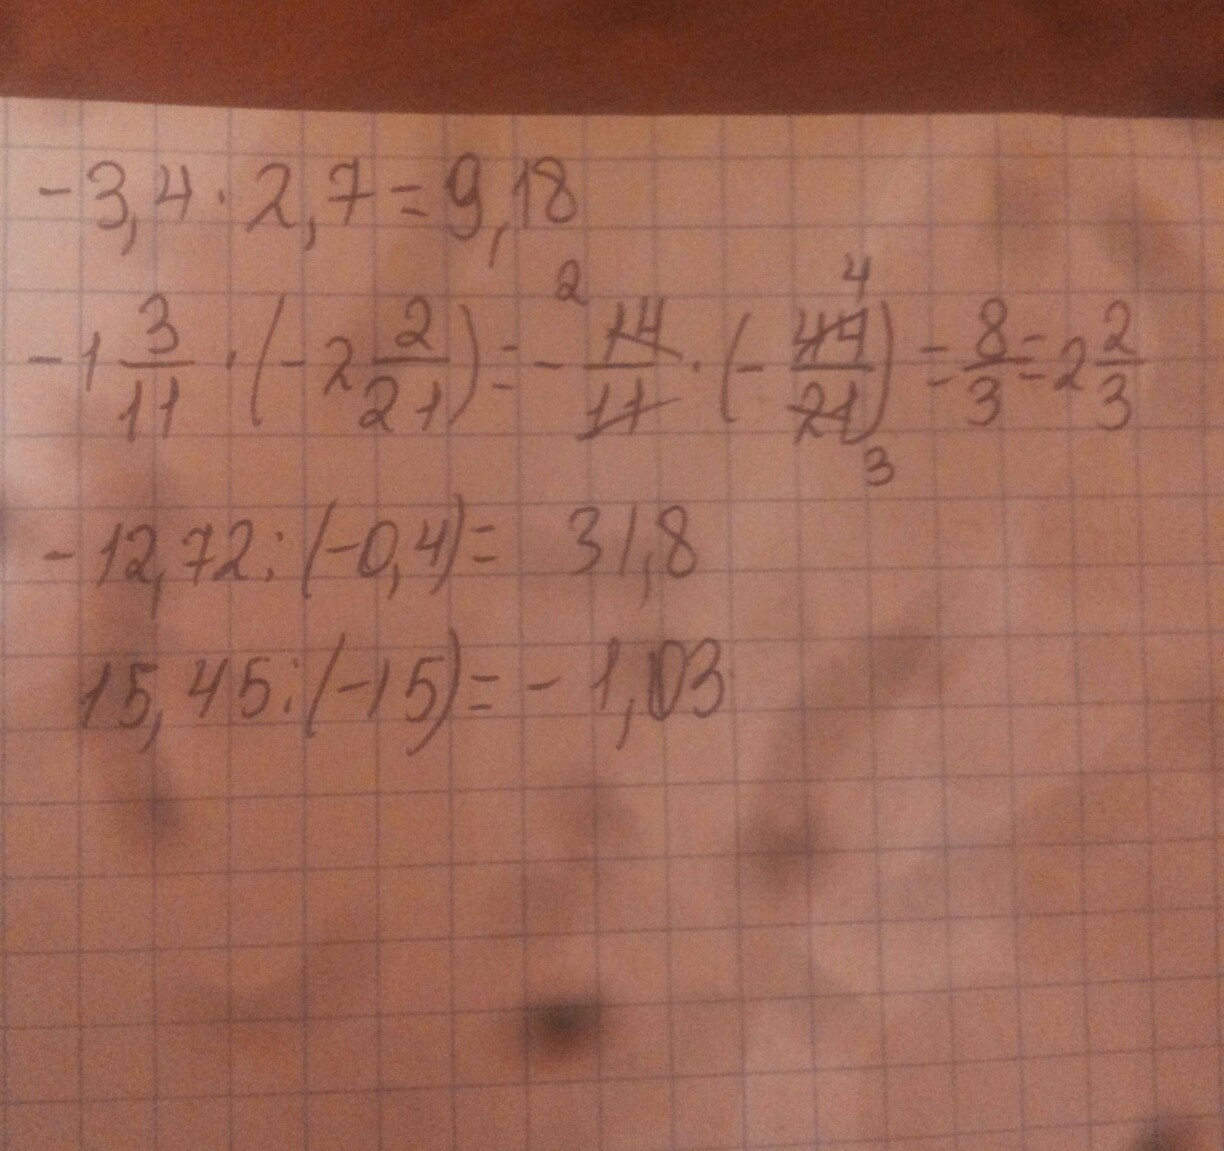 -3,4 · 2,7 = 9,18
-1 3/11 · (-2 2/21) = - 14/11 · (- 44/21) = 8/3 = 2 2/3
2 4 3
-12,72 : (-0,4) = 31,8
15,45 : (-15) = - 1,03